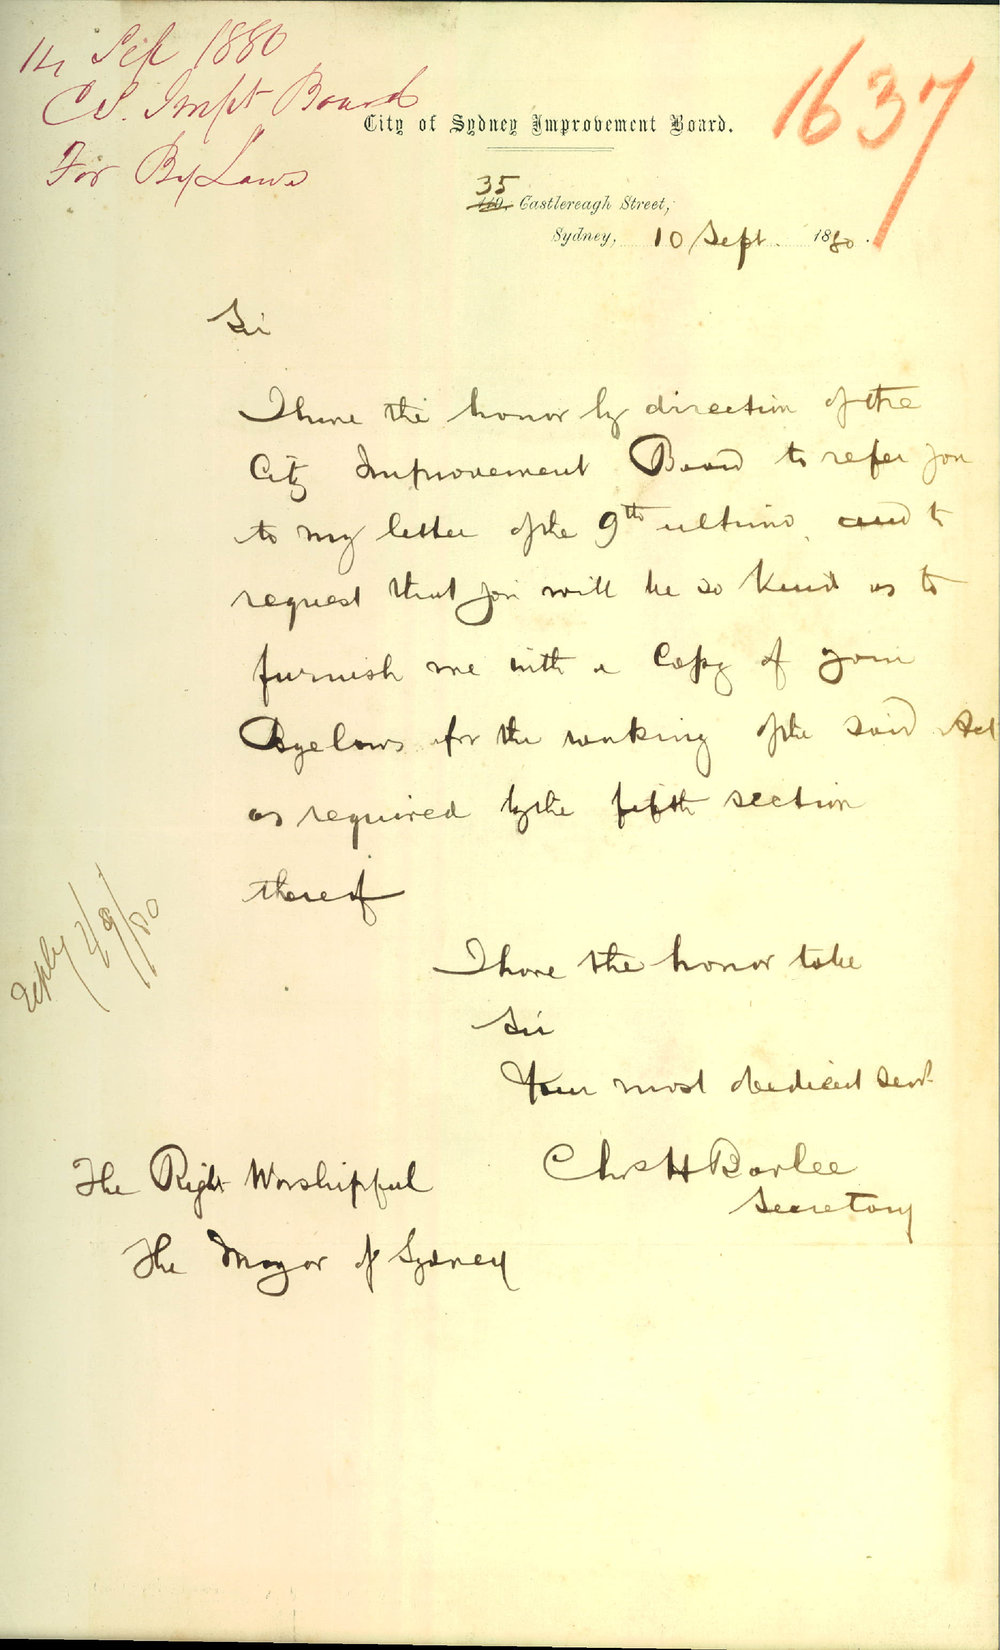 14 Sep 1880
C S. Impt Board
For ByLaws
1637
City of Sydney Improvement Board.
35
119, Castlereagh Street,
Sydney, 10 Sept. 1880.
Sir
I have the honor by direction of the
City Improvement Board to refer you
to my letter of the 9th ultimo, and to
request that you will be so kind as to
furnish me with a Copy of your
Byelaws for the working of the said Act
as required by the fifth section
thereof
I have the honor to be
Sir
Your most obedient servt.
Chrs H Barlee
Secretary
The Right Worshipful
The Mayor of Sydney
reply /9/80